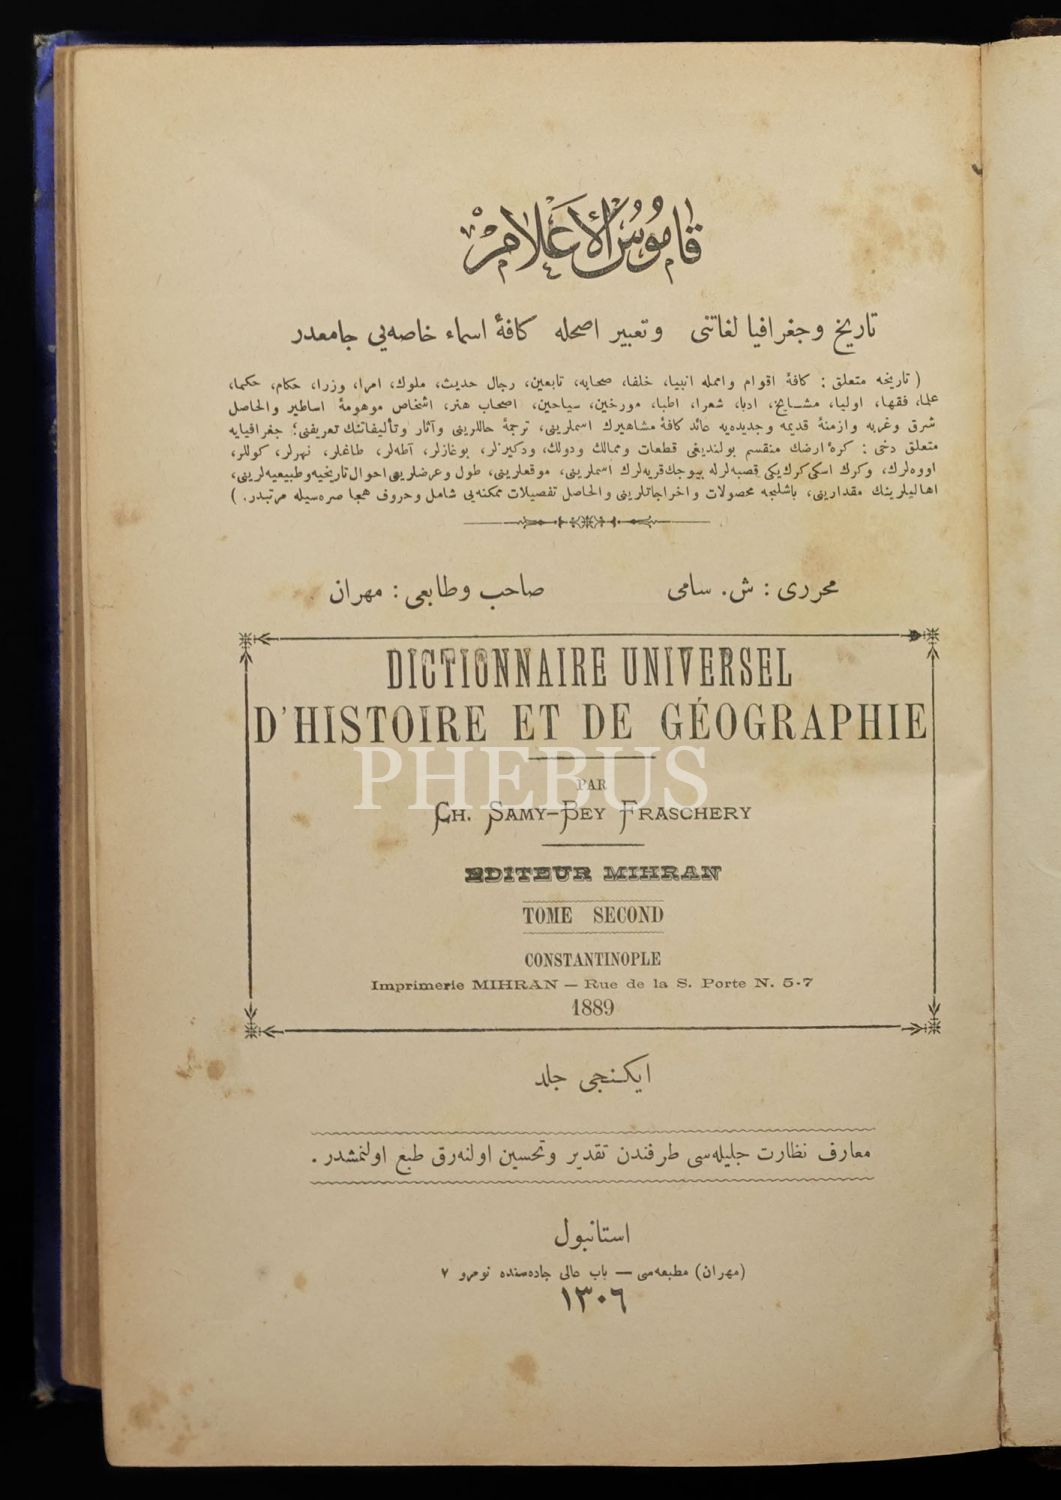 قَامُوسُ الْأَعْلَام
تاريخ وجغرافيا لغاتنى وتعبير اصحله كافهٔ اسماء خاصه‌يى جامعدر
( تاريخه متعلق : كافهٔ اقوام وامله انبيا، خلفا، صحابه، تابعين، رجال حديث، ملوك، امرا، وزرا، حكام، حكما،
علما، فقها، اوليا، مشايخ، ادبا، شعرا، اطبا، مورخين، سياحين، اصحاب هنر، اشخاص موهومهٔ اساطير والحاصل
شرق وغربه وازمنهٔ قديمه وجديده‌يه عائد كافهٔ مشاهيرك اسملرينى، ترجمهٔ حاللرينى وآثار وتأليفاتنك تعريفنى؛ جغرافيايه
متعلق دخى : كرهٔ ارضك منقسم بولنديغى قطعات وممالك ودولك، ودكزلر، بوغازلر، آطه‌لر، طاغلر، نهرلر، كوللر،
اووه‌لرك، وكرك اسكى كرك يكى قصبه‌لرله بيوجك قريه‌لرك اسملرينى، موقعلرينى، طول وعرضلرينى احوال تاريخيه وطبيعيه‌لرينى،
اهاليلرينك مقدارينى، باشليجه محصولات واخراجاتلرينى والحاصل تفصيلات ممكنه‌يى شامل وحروف هجا صره‌سيله مرتبدر. )
محررى : ش. سامى صاحب وطابعى : مهران
DICTIONNAIRE UNIVERSEL
D'HISTOIRE ET DE GÉOGRAPHIE
PHEBUS
PAR
CH. SAMY-BEY FRASCHERY
EDITEUR MIHRAN
TOME SECOND
CONSTANTINOPLE
Imprimerie MIHRAN — Rue de la S. Porte N. 5-7
1889
ايكنجى جلد
معارف نظارت جليله‌سى طرفندن تقدير وتحسين اولنه‌رق طبع اولنمشدر.
استانبول
(مهران) مطبعه‌سى — باب عالى جاده‌سنده نومرو ٧
١٣٠٦